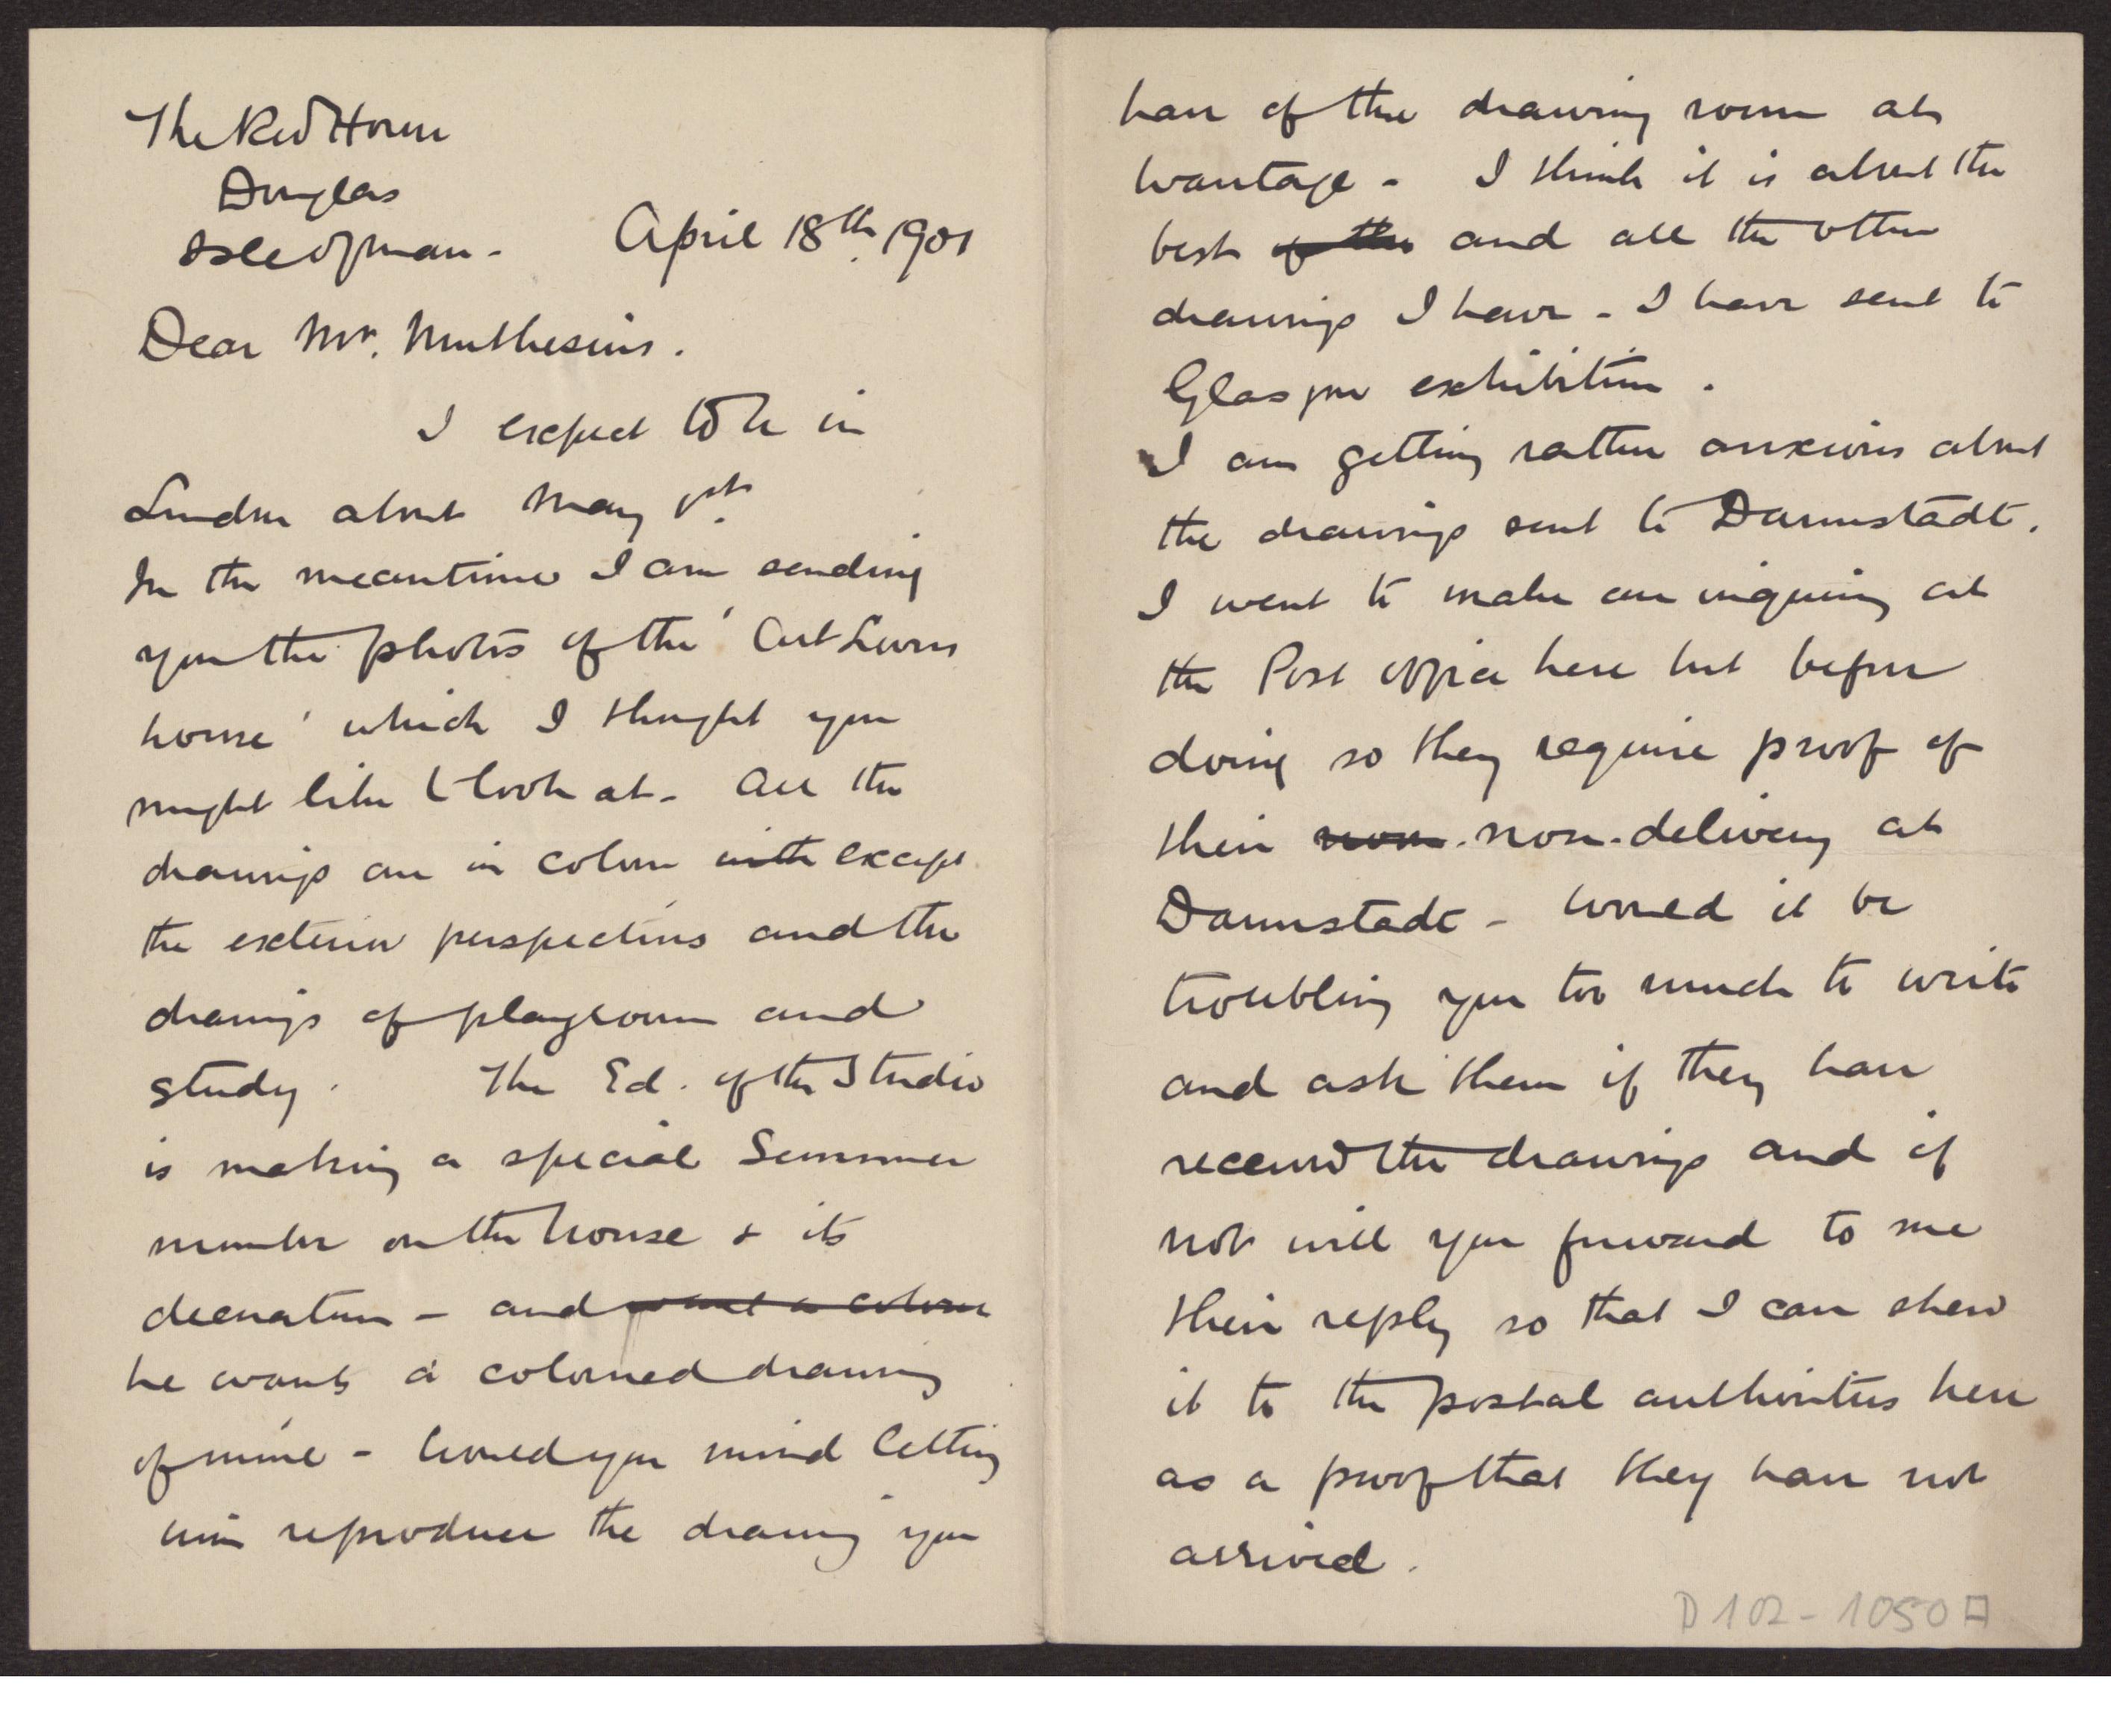 The Red House
Douglas
Isle of Man -
April 18th. 1901
Dear Mr. Muthesius.
I expect to be in
London about May 1st.
In the meantime I am sending
you the photos of the 'Art Lovers
house' which I thought you
might like to look at - All the
drawings are in colour with except
the exterior perspectives and the
drawings of playroom and
study. The Ed. of the Studio
is making a special Summer
number on the house & its
decoration - and want a colour
he wants a coloured drawing
of mine - Would you mind letting
him reproduce the drawing you
have of the drawing room at
Wantage - I think it is about the
best of the and all the other
drawings I have - I have sent to
Glasgow exhibition.
I am getting rather anxious about
the drawings sent to Darmstadt.
I went to make an inquiry at
the Post office here but before
doing so they require proof of
their non. non-delivery at
Darmstadt - Would it be
troubling you too much to write
and ask them if they have
received the drawings and if
not will you forward to me
their reply so that I can shew
it to the postal authorities here
as a proof that they have not
arrived.
D 102 - 1050 A